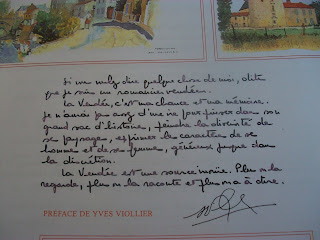 Si vous voulez dire quelque chose de moi, dites
que je suis un romancier vendéen.
La Vendée, c'est ma chance et ma mémoire.
Je n'aurai pas assez d'une vie pour puiser dans son
grand sac d'histoire, peindre la diversité de
ses paysages, exprimer le caractère de ses
hommes et de ses femmes, généreux jusque dans
la discrétion.
La Vendée est une source inouïe. Plus on la
regarde, plus on la raconte et plus on a à dire.
PREFACE DE YVES VIOLLIER